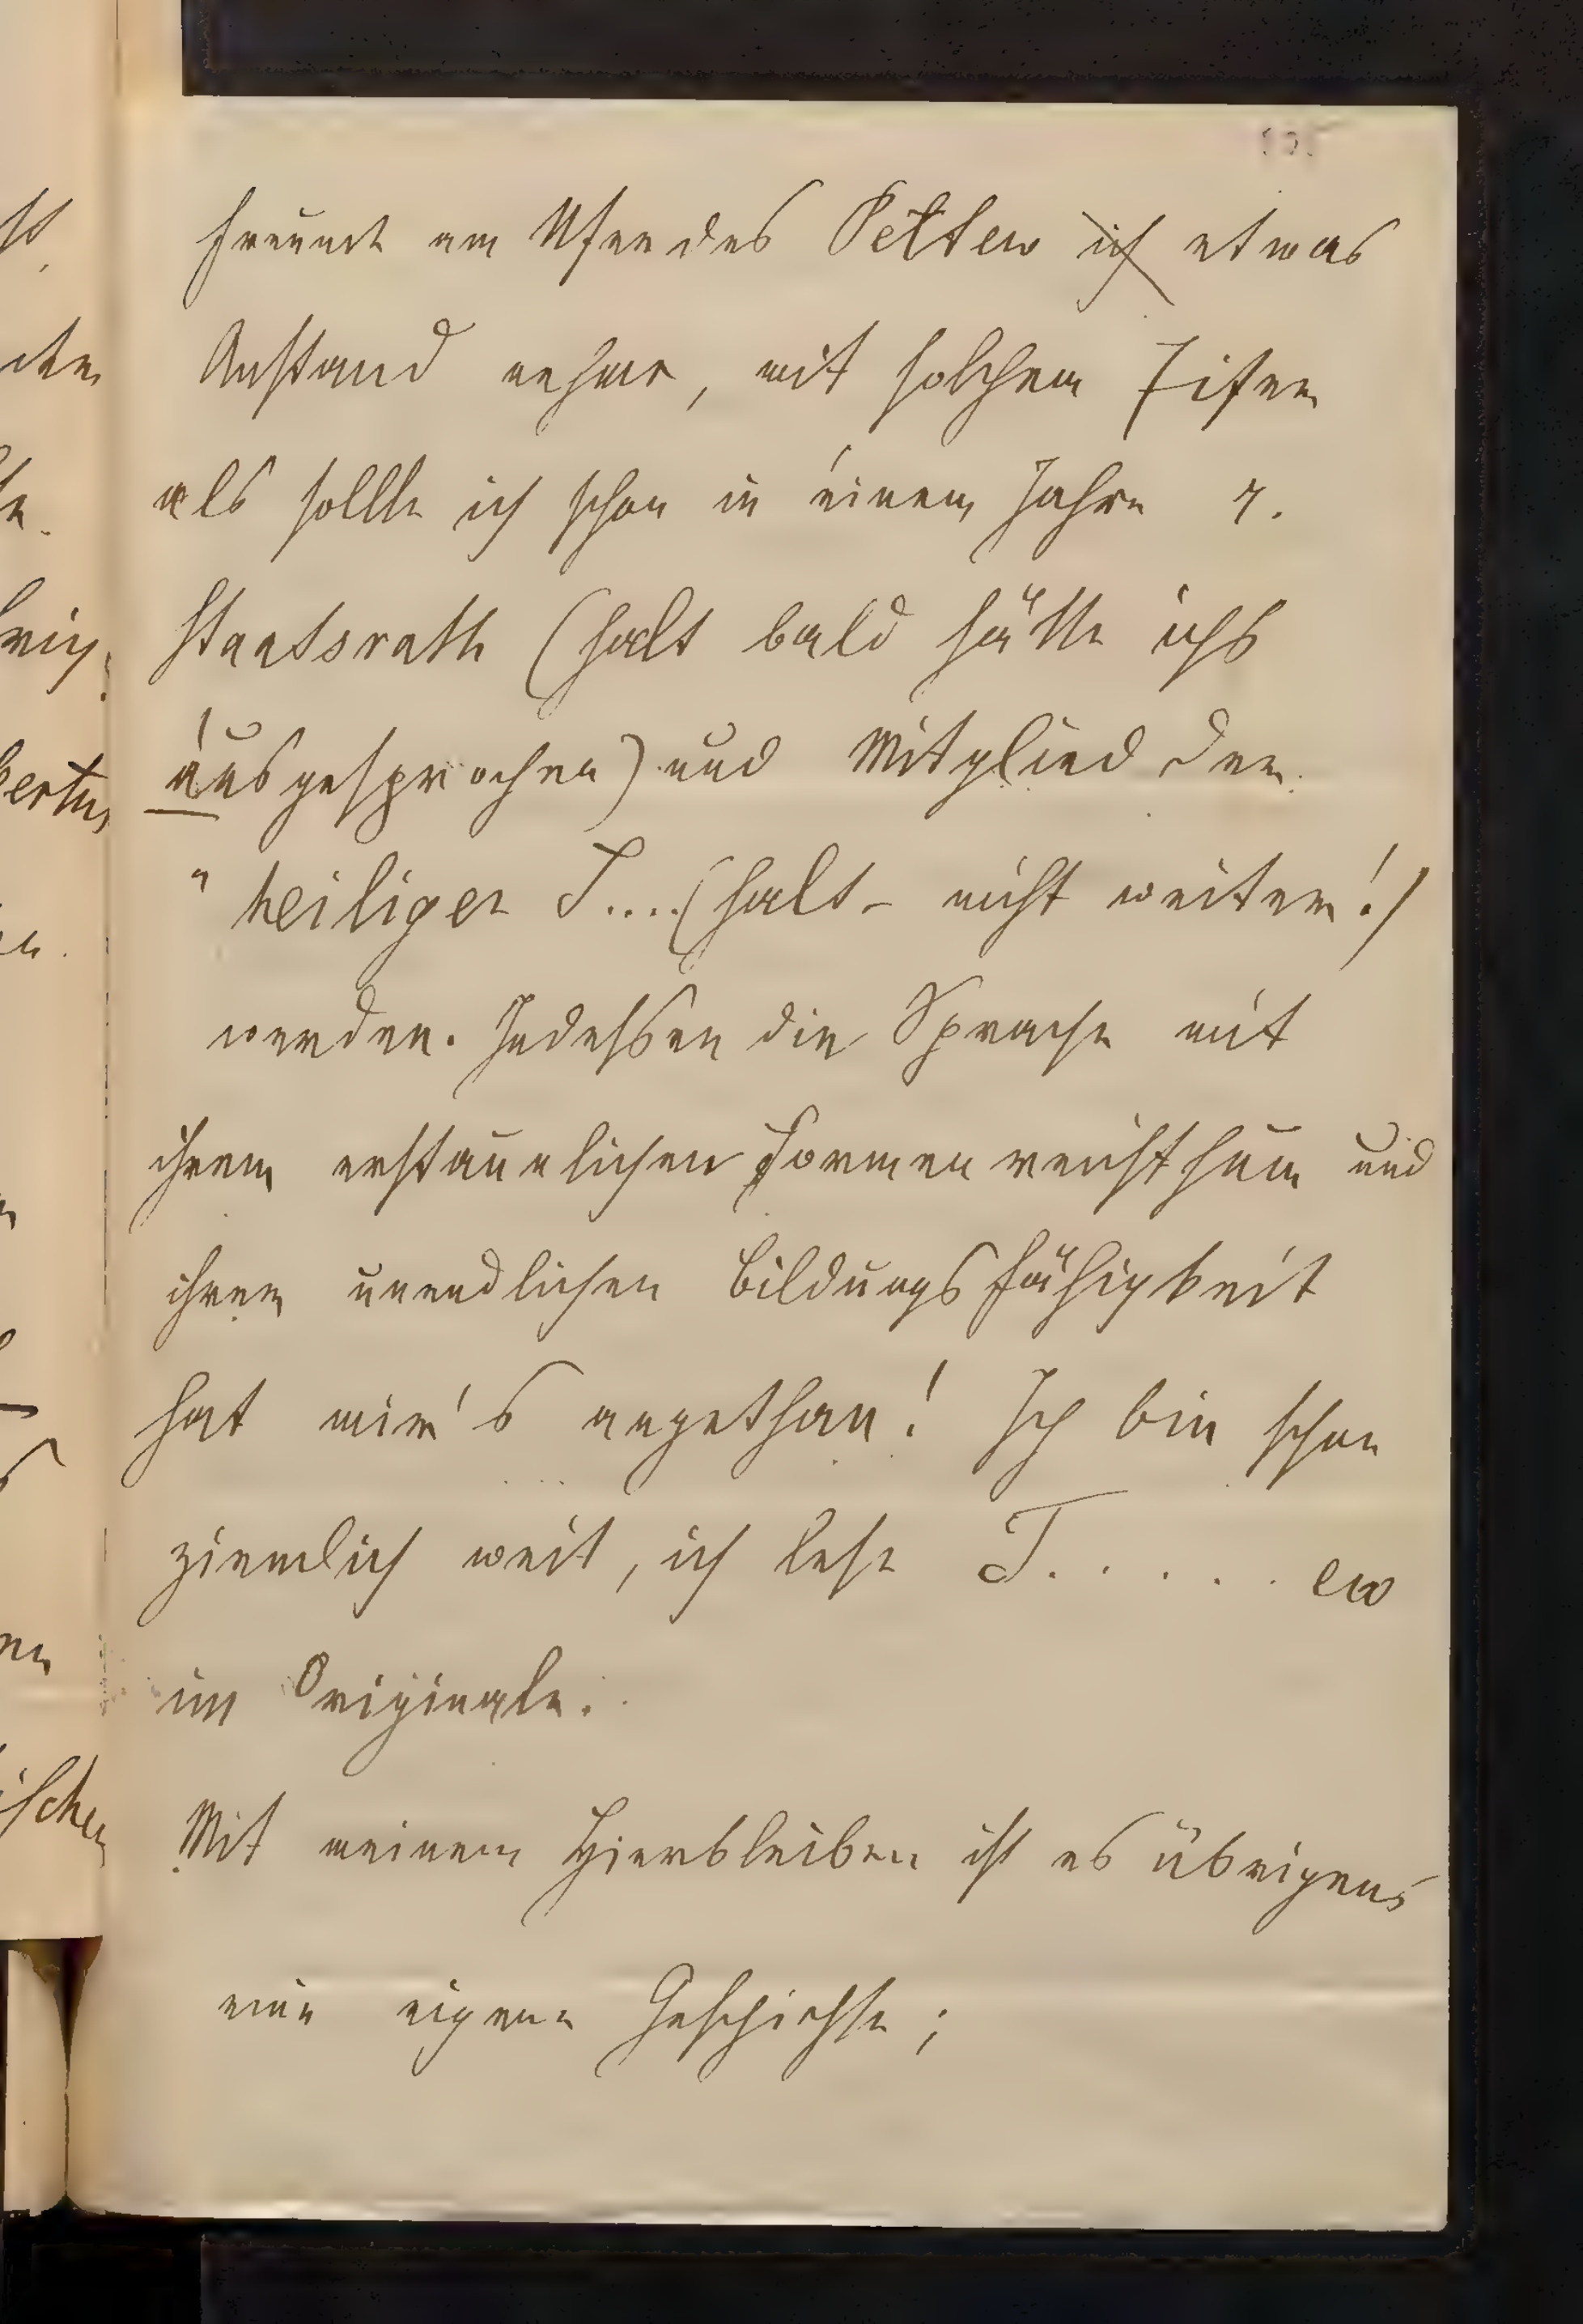 freund am Ufer des Peltew ich etwas
Anstand nehme, mit solchem Eifer
als sollte ich schon in einem Jahre r.
Staatsrath (halt bald hätte ichs
ausgesprochen) und Mitglied der
"heiliger S.... (halt - nicht weiter!)
werden. Indessen die Sprache mit
ihrem erstaunlichen Formenreichthum und
ihrer unendlichen Bildungsfähigkeit
hat mir's angethan! Ich bin schon
ziemlich weit, ich lese T. . . . . . ew
im Originale.
Mit meinem Hierbleiben ist es übrigens
eine eigene Geschichte;